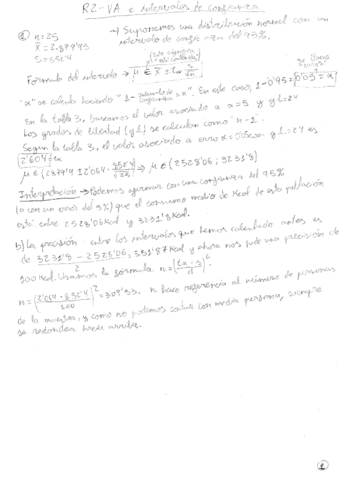 R2 - VA e Intervalos de Confianza
a) n=25 → Suponemos una distribución normal con un
X̄ = 2.879'93 intervalo de confianza del 95%.
S = 852'4
Fórmula del intervalo → μ ∈ X̄ ± tα·
"α" se calcula haciendo "1- = α". En este caso, 1-0'95 = 0'05 = α
En la tabla 3, buscamos el valor asociado a α=5 y gl=24
Los grados de libertad (gl) se calculan como "n-1".
Según la tabla 3, el valor asociado a error α=0'05 gl=24 es
2'064 = tα
μ ∈ (2879'9 ± 2'064 · 852'4/√25) ⇒ μ ∈ (2528'06; 3231'8)
Interpretación → Podemos afirmar con una confianza del 95%
(o con un error del 5%) que el consumo medio de Kcal de esta población
está entre 2528'06 Kcal y 3231'8 Kcal.
b) La precisión entre los intervalos que hemos calculado antes es
de 3231'8 - 2528'06 / 2 = 351'87 Kcal y ahora nos pide una precisión de
100 Kcal. Usamos la fórmula n = (tα · s / d)²
n = (2'064 · 852'4 / 100)² = 309'53. n hace referencia al número de personas
de la muestra, y como no podemos contar con media persona, siempre
se redondea hacia arriba.